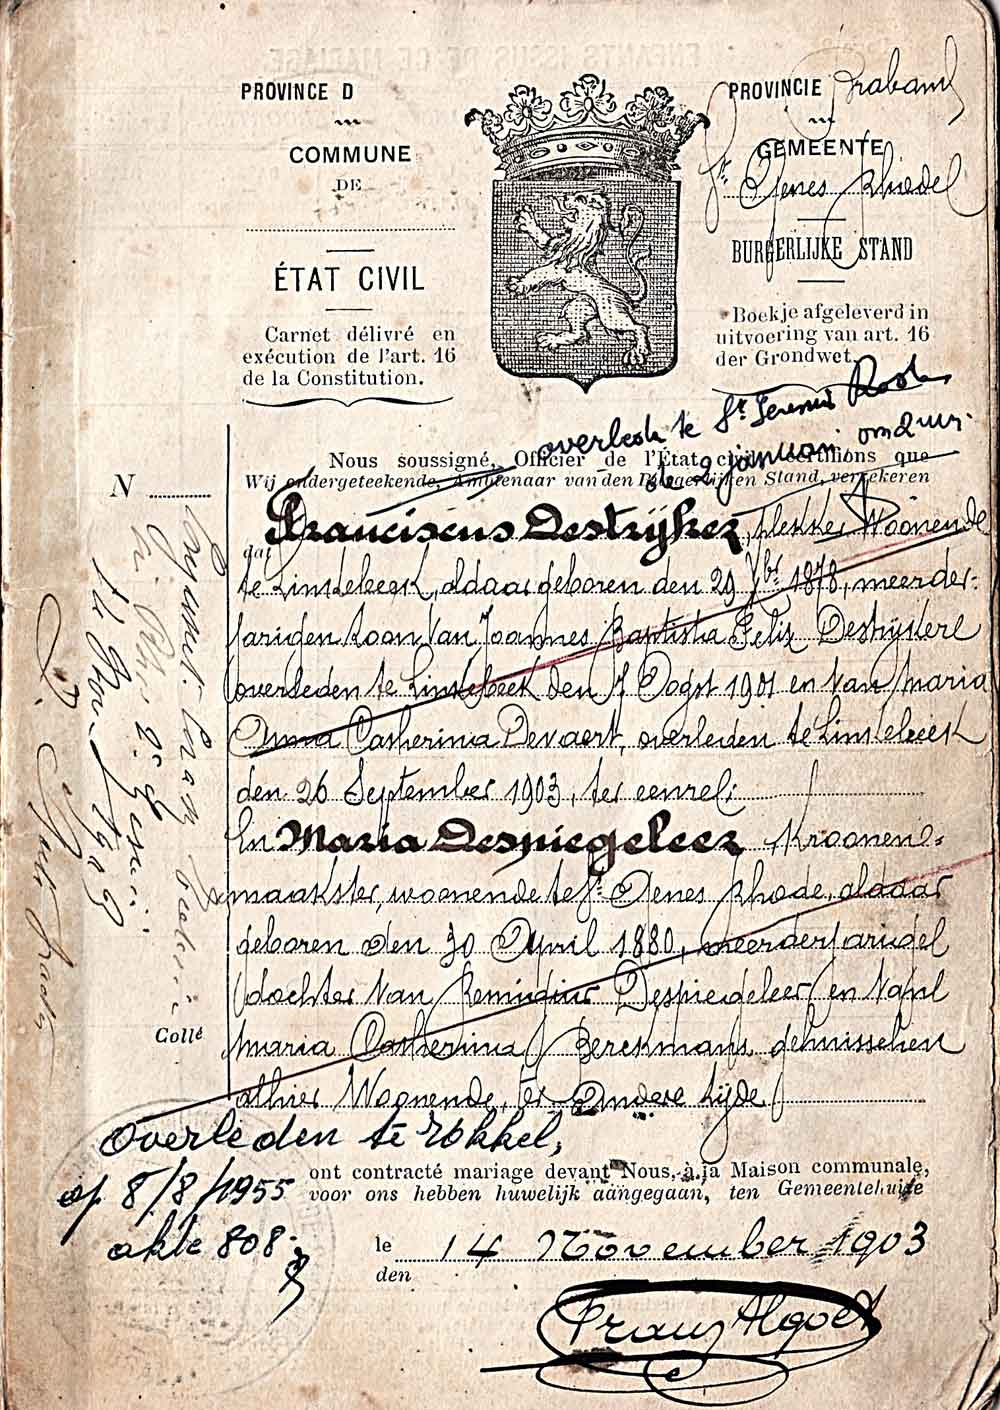 PROVINCE D
COMMUNE
DE
ÉTAT CIVIL
Carnet délivré en
exécution de l'art. 16
de la Constitution.
PROVINCIE Braband
GEMEENTE
St. Genes Rhode
BURGERLIJKE STAND
Boekje afgeleverd in
uitvoering van art. 16
der Grondwet.
te St. Genesius Rode
2 januari om 2 uur.
Nous soussigné, Officier de l'Etat civil certifions que
Wij ondergeteekende, Ambtenaar van den Burgerlijken Stand, verzekeren
dat
Franciscus Destrijker, Woonende
te Linkebeek, aldaar geboren den 29 1878, meerder-
jarigen Zoon Van Joannes Baptista Felix Destrijker
overleden te Linkebeek den 7 Oogst 1901 en Van Maria
Anna Catherina Devaert, overleden te Linkebeek
den 26 September 1903, ter eenre;
En Maria Despiegeleer Kroonen-
maakster, woonende te St. Genes Rhode, aldaar
geboren den 30 April 1880, meerderjarige
dochter Van Remigius Despiegeleer en Van
Maria Catherina Berckmans gehuisschen
alhier Woonende, ter Andere zijde
N
Collé
Overleden te Ukkel,
op 8/8/1955
akte 808.
ont contracté mariage devant Nous, à la Maison communale,
voor ons hebben huwelijk aangegaan, ten Gemeentehuize
le
den
14 November 1903
Franz Algoet